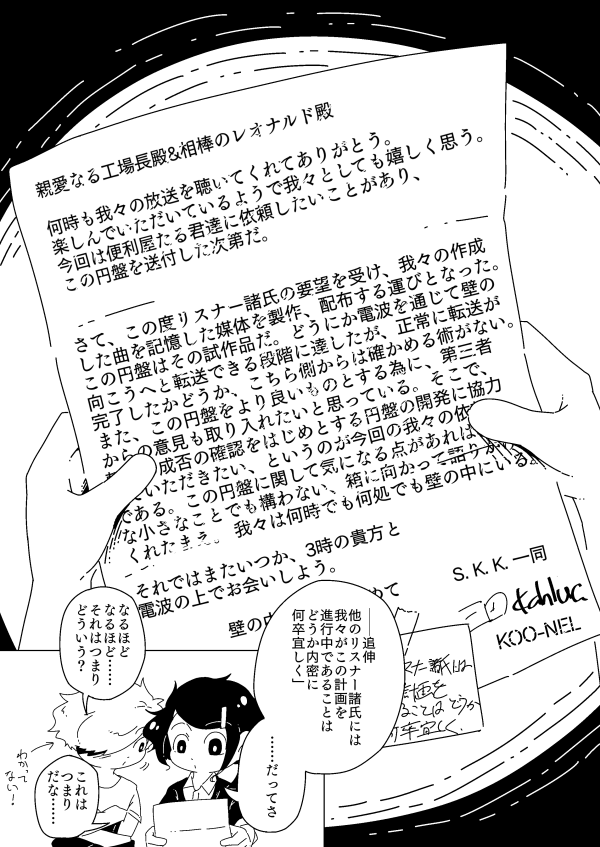 親愛なる工場長殿&相棒のレオナルド殿
何時も我々の放送を聴いてくれてありがとう。
楽しんでいただいているようで我々としても嬉しく思う。
今回は便利屋たる君達に依頼したいことがあり、
この円盤を送付した次第だ。
さて、この度リスナー諸氏の要望を受け、我々の作成
した曲を記憶した媒体を製作、配布する運びとなった。
この円盤はその試作品だ。どうにか電波を通じて壁の
向こうへと転送できる段階に達したが、正常に転送が
完了したかどうか、こちら側からは確かめる術がない。
また、この円盤をより良いものとする為に、第三者
からの意見も取り入れたいと思っている。そこで、
成否の確認をはじめとする円盤の開発に協力
いただきたい、というのが今回の我々の依
である。この円盤に関して気になる点があれば
な小さなことでも構わない、箱に向かって語りか
くれたまえ。我々は何時でも何処でも壁の中にいる。
それではまたいつか、3時の貴方と
電波の上でお会いしよう。
壁の中
めて
S.K.K.一同
KOO-NEL
計画を
ことは どうか
卒宜しく
──追伸
他のリスナー諸氏には
我々がこの計画を
進行中であることは
どうか内密に
何卒宜しく」
……だってさ
なるほど
なるほど……
それはつまり
どういう？
これは
つまり
だな……
わかって
ない！